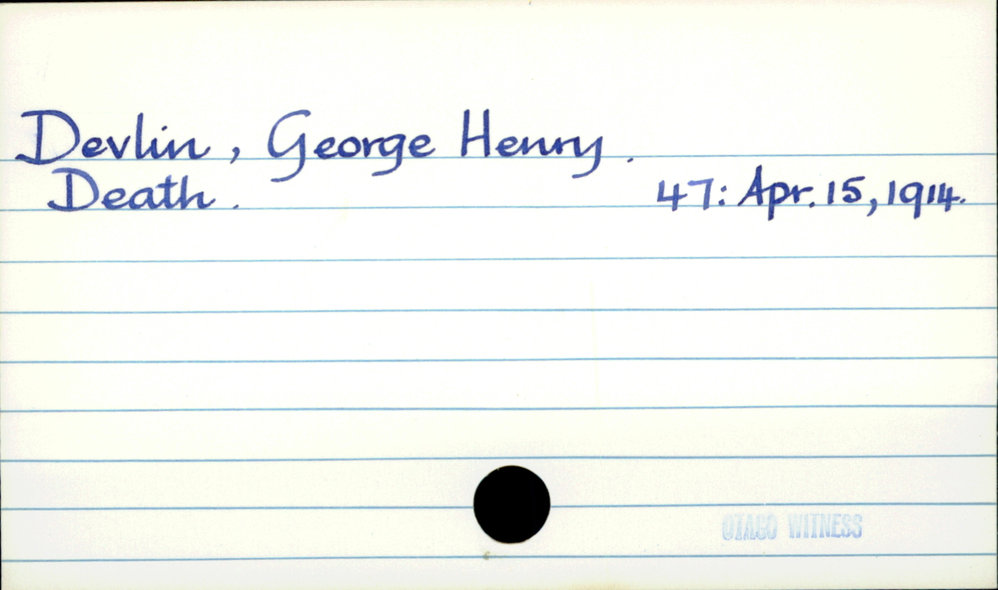 Devlin, George Henry.
Death. 47: Apr. 15, 1914.
OTAGO WITNESS